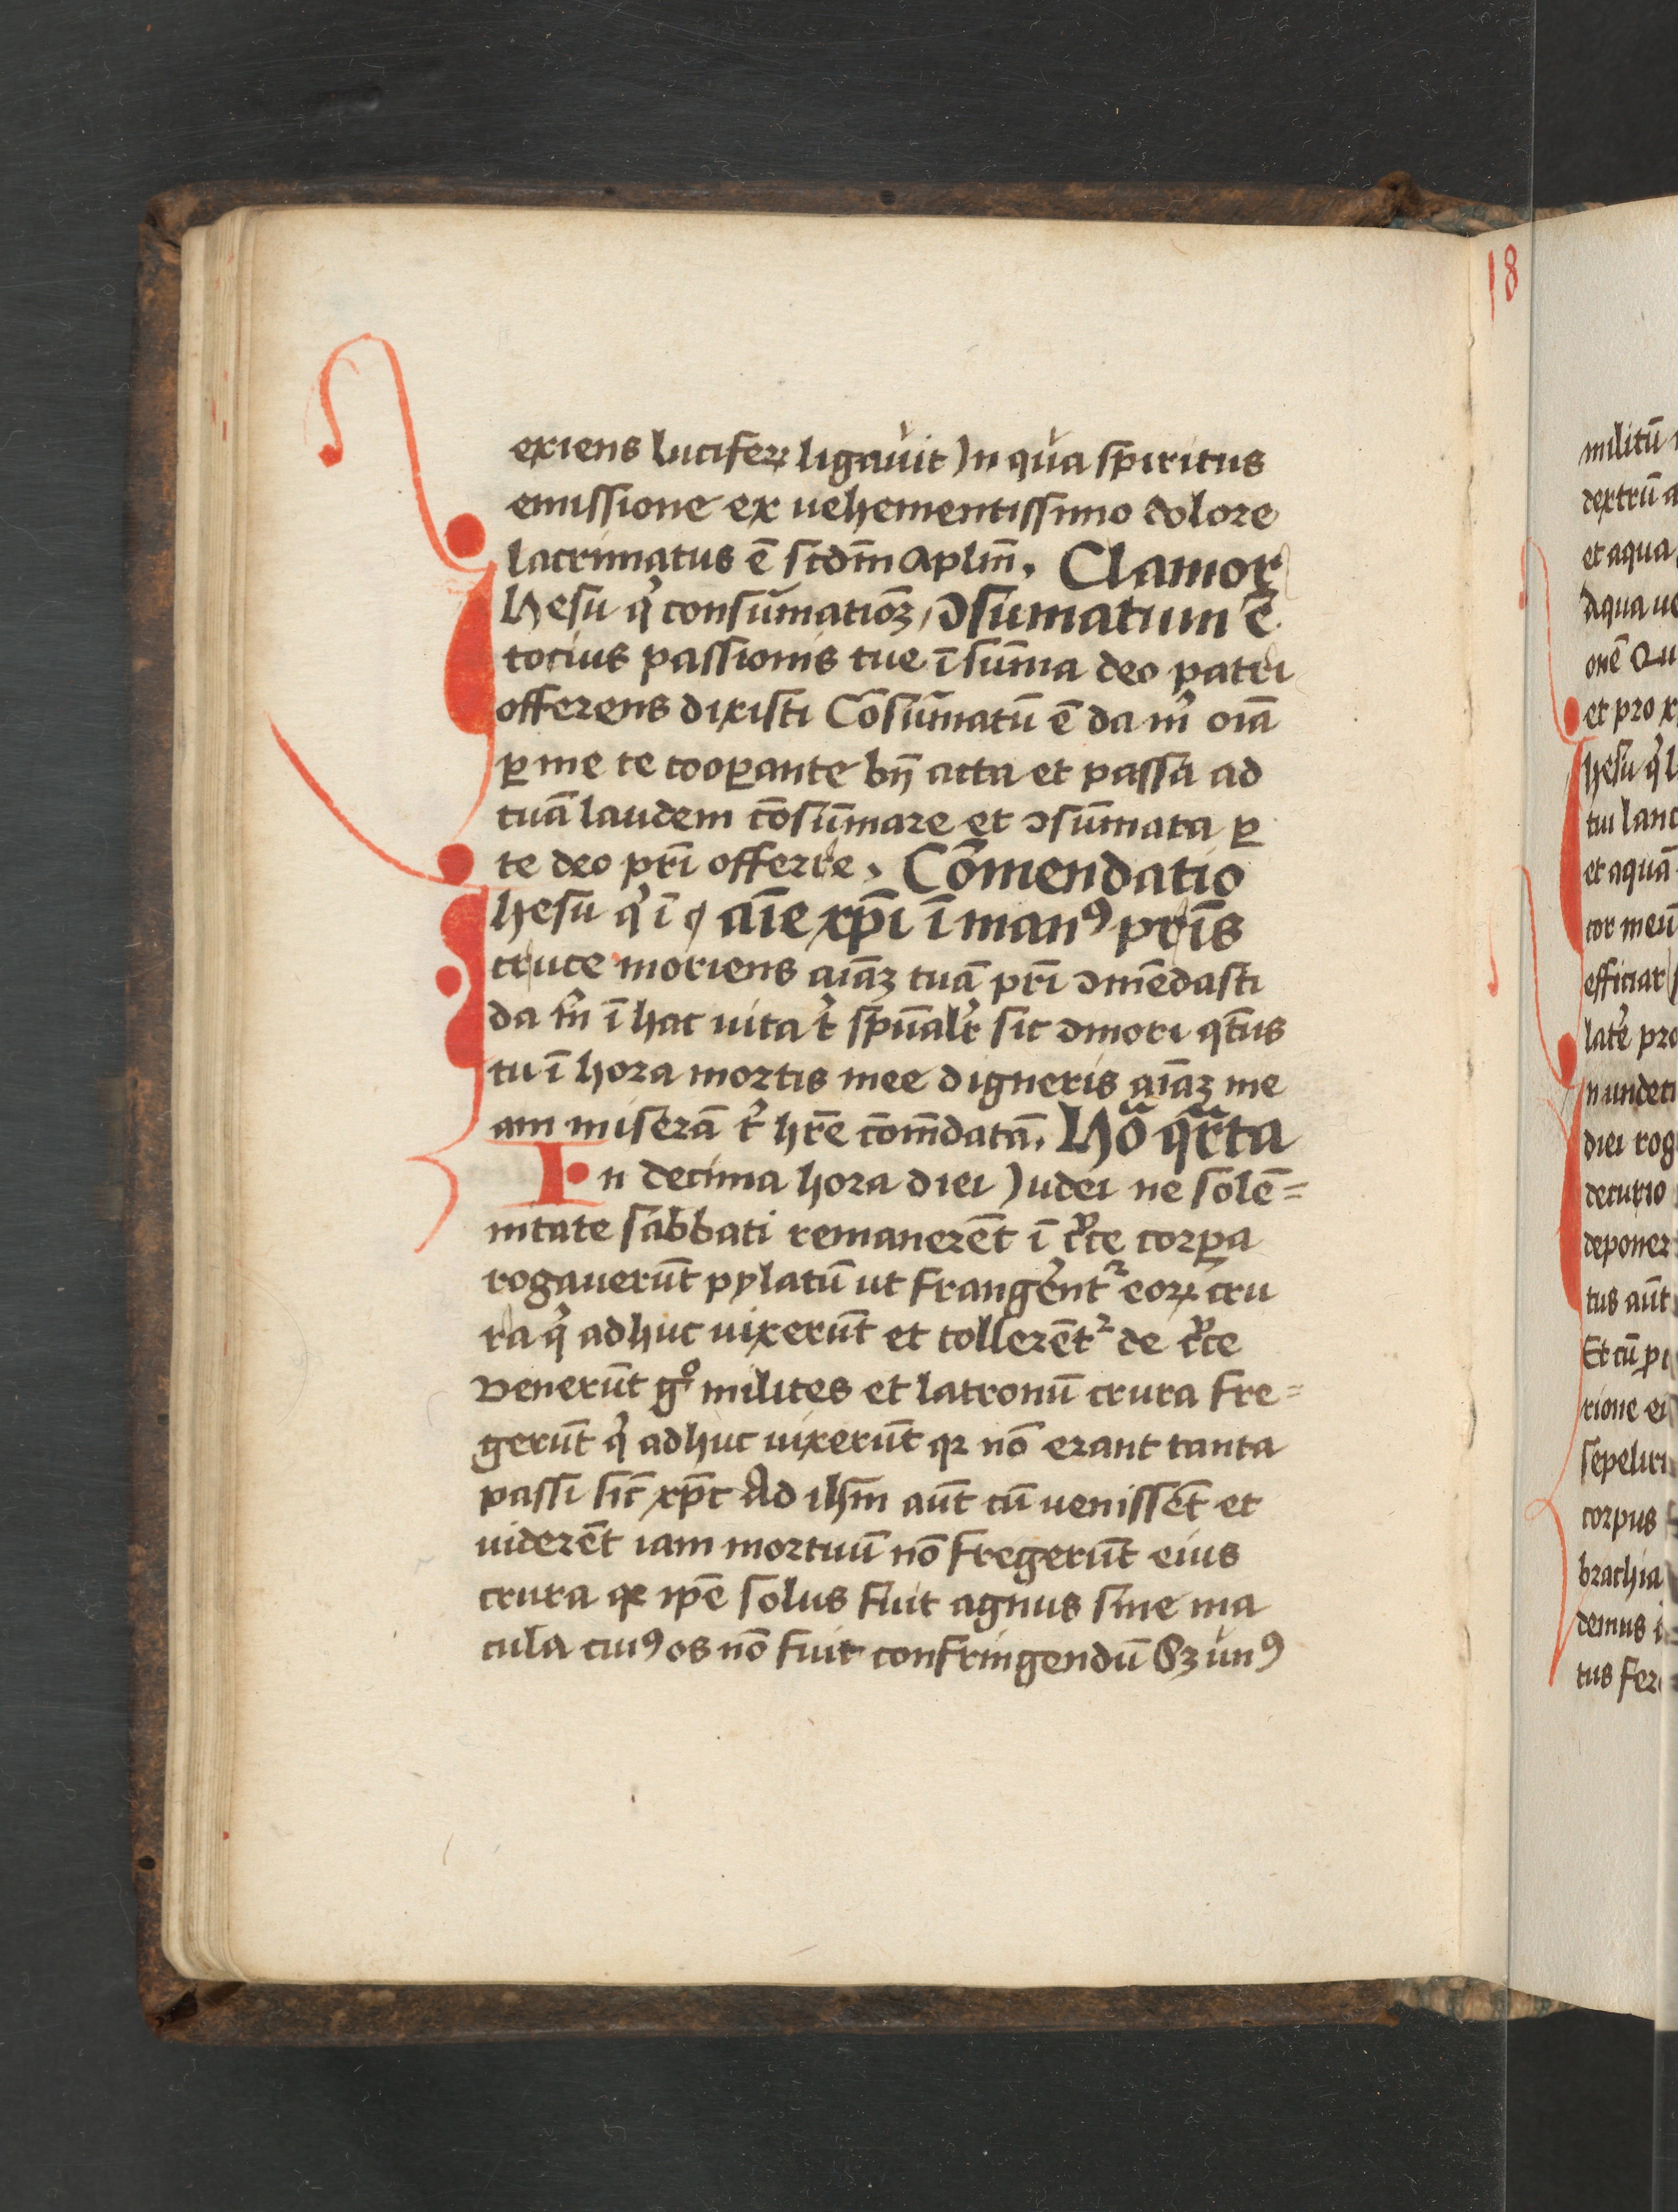 exiens luciferꝝ ligauit In qua spiritus
emissione ex uehementissimo dolore
lacrimatus ē scd̄m apl̄m. Clamor
Ihesu qͥ consūmatioꝫ / ɔsumatum ē
tocius passionis tue ī sum̄a deo patri
offerens dixisti Cōsūmatū ē da mͥ oīa
ꝑ me te cooꝑante bn̄ acta et passa ad
tuā laudem cōsūmare et ɔsūmata ꝑ
te deo pr̄i offerre. Cōmendatio
Ihesu qͥ ī aīe xp̄i ī manꝰ pr̄is
cruce moriens aīaꝫ tuā pr̄i ɔmēdasti
da m̄ ī hac uita tͥ sp̄ualr̄ sic ɔmori qt̄us
tu ī hora mortis mee digneris aīaꝫ me
am miserā tͥ hr̄e cōm̄datā. Hōͣ qrͣta
In decima hora diei Iudei ne solē=
nitate sabbati remanerēt ī cͬce corꝑa
rogauerūt pylatū ut frangerentᷣ eoꝝ cru
ra qͥ adhuc uixerūt et tollerētᷣ de cͬce
Venerūt gͦ milites et latronū crura fre=
gerūt qͥ adhuc uixerūt qꝛ nō erant tanta
passi sic̄ xp̄c Ad ihm̄ aūt cū uenissēt et
uiderēt iam mortuū nō fregerūt eius
crura qꝛ ip̄e solus fuit agnus sine ma
cula cuiꝰ os nō fuit confringendū Sꝫ unꝰ
18
militū
dextrū a
et aqua
aqua ue
onē Qu
et pro x
Ihesu qͥ l
tui lanc
et aquā
cor meū
efficiar
latē pro
In undeci
diei rog
decurio
deponer
tus aūt
Et cū pi
rione ei
sepeliri
corpus
brachia
demus i
tus fer